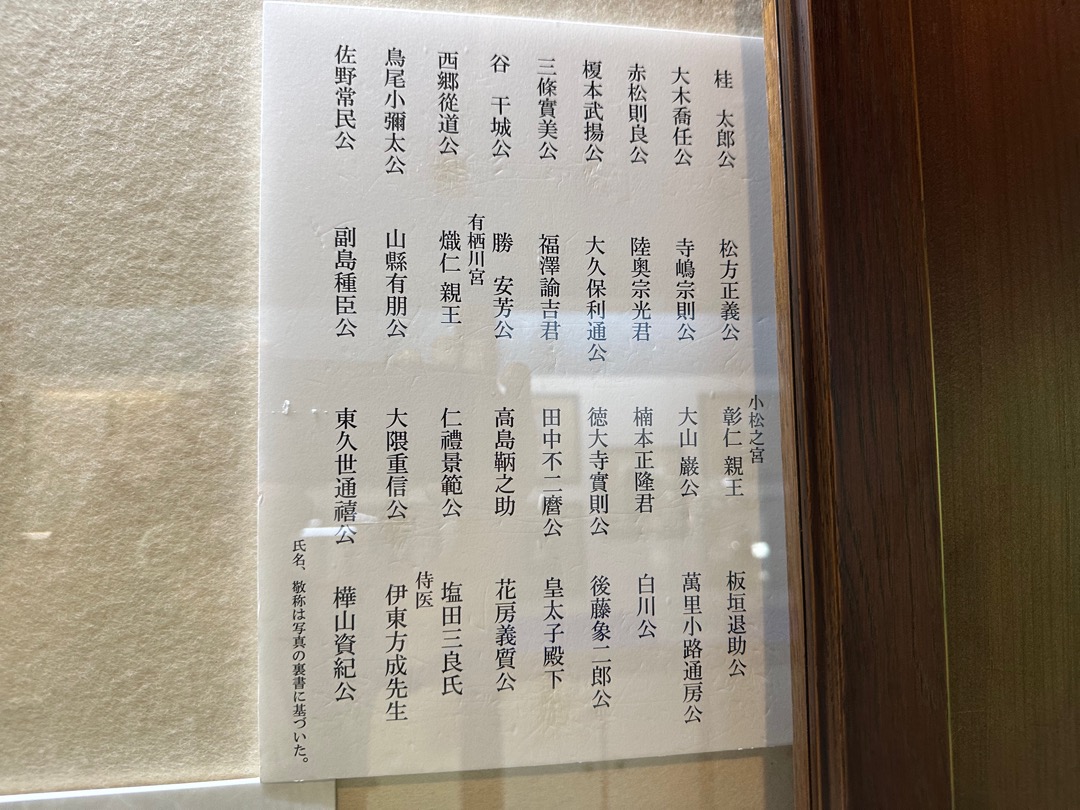 桂　太郎公
松方正義公
小松之宮
彰仁 親王
板垣退助公
大木喬任公
寺嶋宗則公
大山 巌公
萬里小路通房公
赤松則良公
陸奥宗光君
楠本正隆君
白川公
榎本武揚公
大久保利通公
徳大寺實則公
後藤象二郎公
三條實美公
福澤諭吉君
田中不二麿公
皇太子殿下
谷　干城公
勝　安芳公
高島鞆之助
花房義質公
西郷從道公
有栖川宮
熾仁 親王
仁禮景範公
塩田三良氏
鳥尾小彌太公
山縣有朋公
大隈重信公
侍医
伊東方成先生
佐野常民公
副島種臣公
東久世通禧公
樺山資紀公
氏名、敬称は写真の裏書に基づいた。